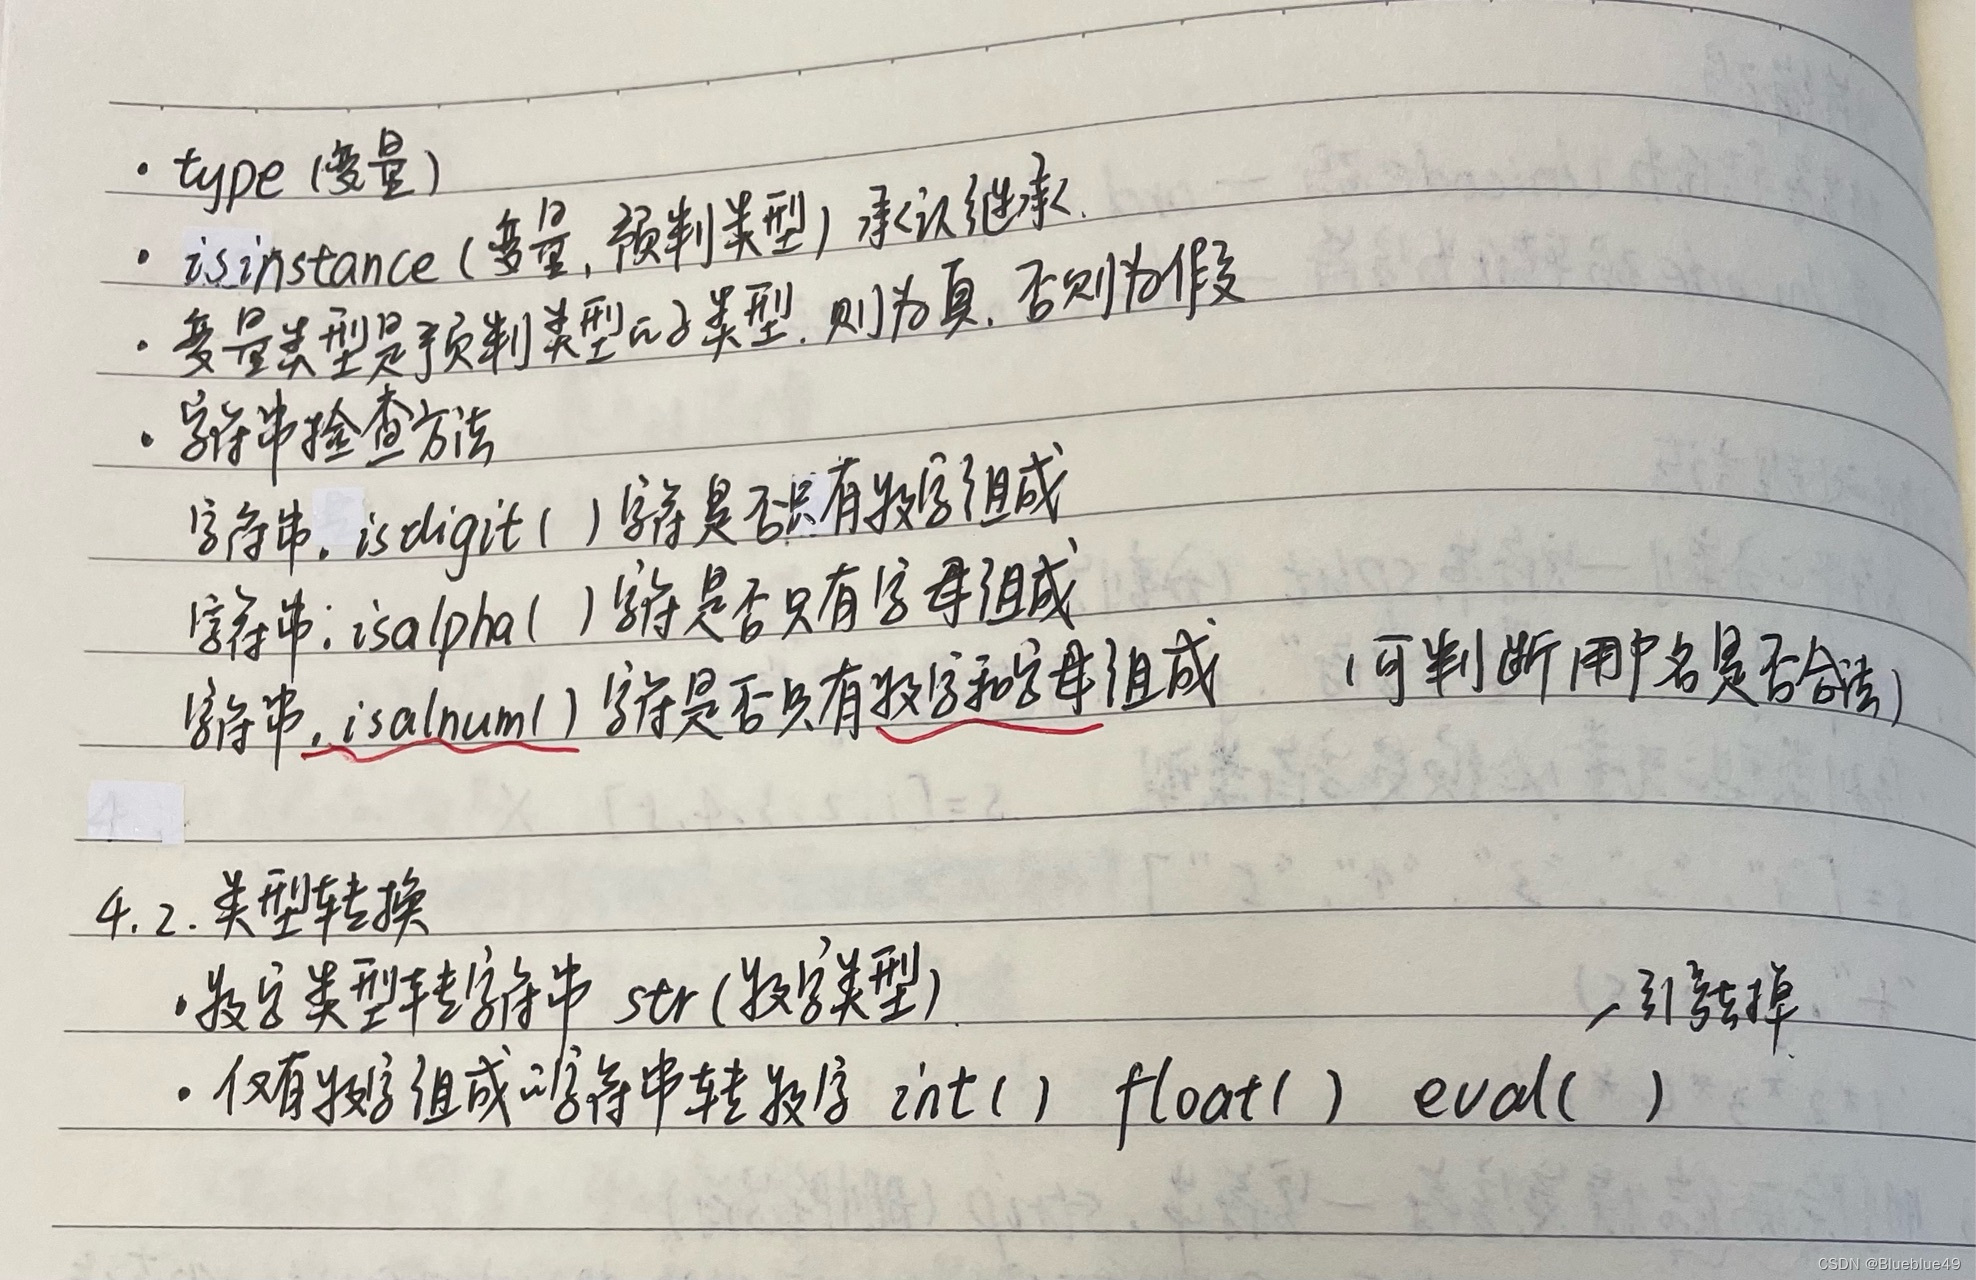 · type (变量)
· isinstance (变量, 预判类型) 承认继承.
· 变量类型是预判类型的子类型. 则为真. 否则为假
· 字符串检查方法
字符串. isdigit( ) 字符是否只有数字组成
字符串. isalpha( ) 字符是否只有字母组成
字符串. isalnum( ) 字符是否只有数字和字母组成 (可判断用户名是否合法)
4.2. 类型转换
· 数字类型转字符串 str (数字类型).
引号去掉.
· 仅有数字组成的字符串转数字 int( ) float( ) eval( )
CSDN @Blueblue49